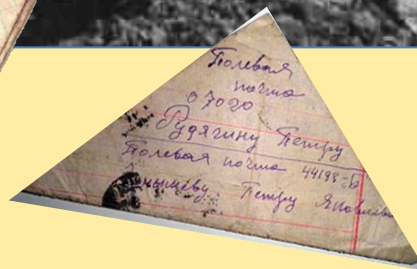 Полевая
почта
07020
Рудягину Петру
Полевая почта 44193-Б
Петру Яковлев